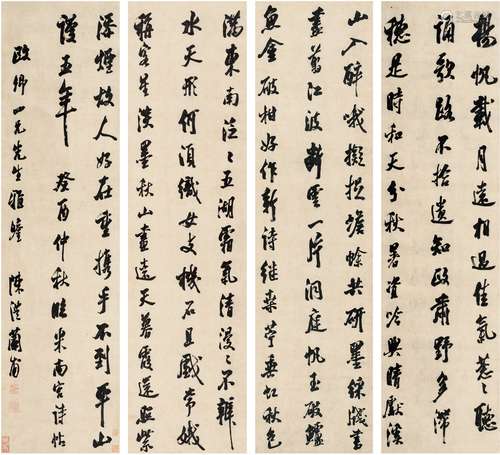 揚帆載月遠相過佳氣葱〻聽
誦歌路不拾遺知政肅野多滯
穗是時和天分秋暑資吟興晴獻溪
山入醉哦擬捉蟾蜍共研墨綵牋書
盡剪江波斷雲一片洞庭帆玉破鱸
魚金破柑好作新詩繼桑苧垂虹秋色
滿東南泛〻五湖霜氣清漫〻不辨
水天形何須織女支機石且戲常娥
稱客星淡墨秋山畫遠天暮霞還照紫
添煙故人好在重攜手不到平山
謾五年 癸酉仲秋臨米南宮詩帖
政卿四兄先生雅鑒 陳澧蘭甫